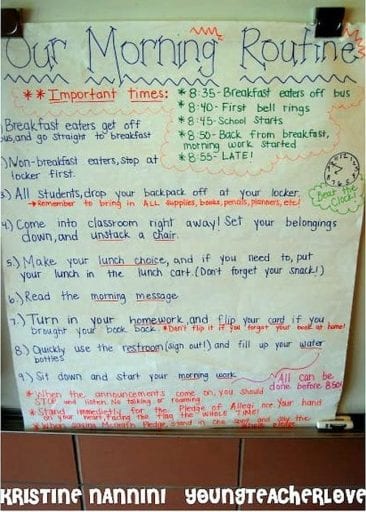 Our Morning Routine
** Important times:
*8:35- Breakfast eaters off bus
*8:40- First bell rings
*8:45- School starts
*8:50- Back from breakfast,
morning work started
*8:55- LATE!
Beat the
Clock!
Breakfast eaters get off
bus, and go straight to breakfast
Non-breakfast eaters, stop at
locker first.
3.) All students, drop your backpack off at your locker.
*Remember to bring in ALL supplies, books, pencils, planners, etc!
4.) Come into classroom right away! Set your belongings
down, and unstack a chair.
5.) Make your lunch choice, and if you need to, put
your lunch in the lunch cart. (Don't forget your snack!)
6.) Read the morning message
7.) Turn in your homework, and flip your card if you
brought your book back. *Don't flip it if you forgot your book at home!
8.) Quickly use the restroom (sign out!) and fill up your water
bottles
9.) Sit down and start your morning work.
All can be
done before 8:50!
*When the announcements come on, you should
STOP and listen. No talking or roaming.
*Stand immedietly for the Pledge of Allegiance. Your hand
on your heart, facing the flag the WHOLE TIME!
Pledge, stand in one spot and say the
KRISTINE NANNINI YOUNGTEACHERLOVE